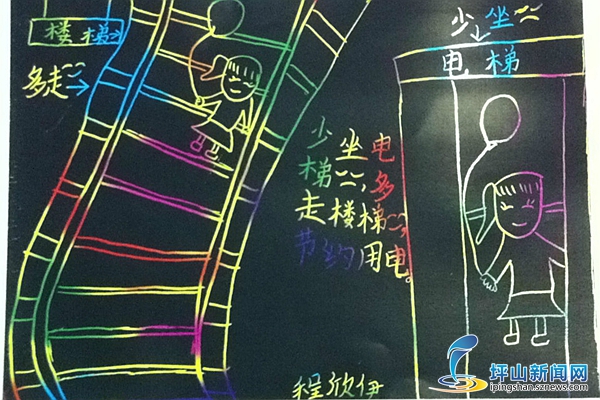 楼梯
多走
少坐
电梯
少坐电
梯，多
走楼梯，
节约用电。
程欣伊
坪山新闻网
ipingshan.sznews.com